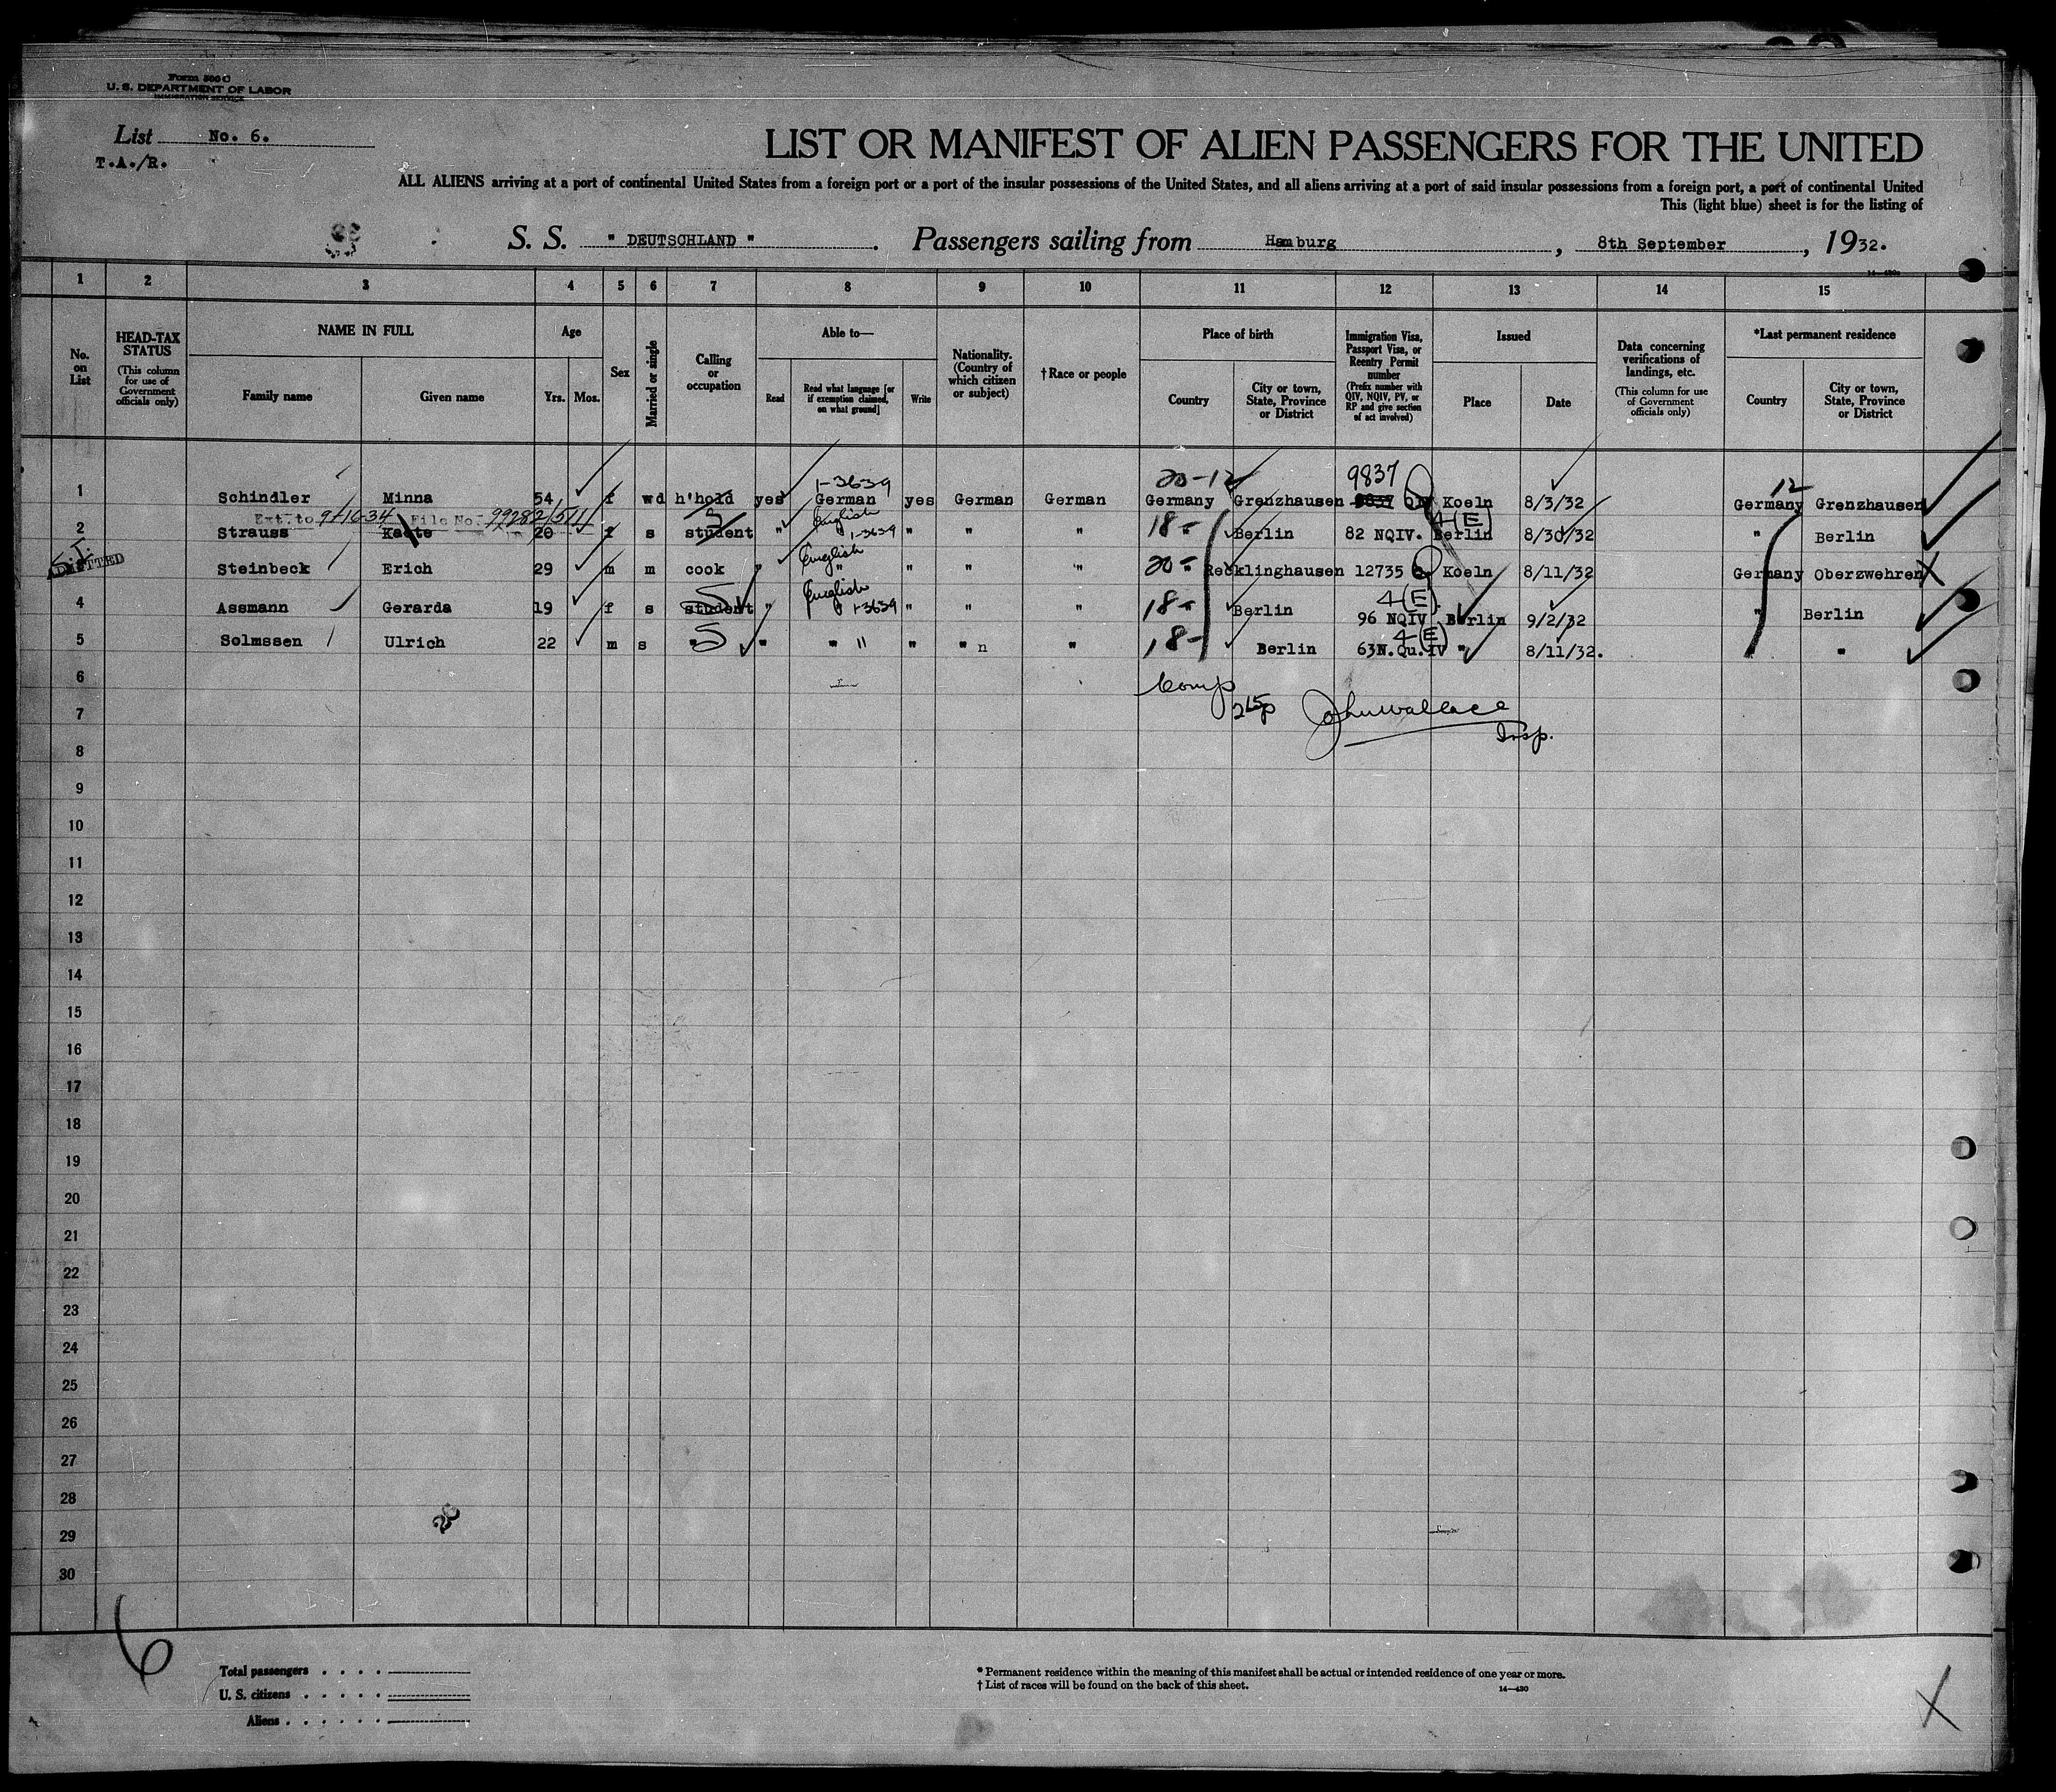 Form 500 C
U. S. DEPARTMENT OF LABOR
IMMIGRATION SERVICE
List No. 6.
T.A./R.
LIST OR MANIFEST OF ALIEN PASSENGERS FOR THE UNITED
ALL ALIENS arriving at a port of continental United States from a foreign port or a port of the insular possessions of the United States, and all aliens arriving at a port of said insular possessions from a foreign port, a port of continental United
This (light blue) sheet is for the listing of
S. S. " DEUTSCHLAND ". Passengers sailing from Hamburg, 8th September, 1932.
1 2 3 4 5 6 7 8 9 10 11 12 13 14 15
No. on List
HEAD-TAX STATUS (This column for use of Government officials only)
NAME IN FULL
Family name Given name
Age
Yrs. Mos.
Sex
Married or single
Calling or occupation
Able to—
Read
Read what language [or if exemption claimed, on what ground]
Write
Nationality. (Country of which citizen or subject)
† Race or people
Place of birth
Country
City or town, State, Province or District
Immigration Visa, Passport Visa, or Reentry Permit number (Prefix number with QIV, NQIV, PV, or RP and give section of act involved)
Issued
Place Date
Data concerning verifications of landings, etc. (This column for use of Government officials only)
*Last permanent residence
Country
City or town, State, Province or District
1-3639 20-12 9837 12
1 Schindler Minna 54 f wd h'hold yes German yes German German Germany Grenzhausen 9837 Koeln 8/3/32 Germany Grenzhausen
Ext. to 9-16-34 File No. 99282/511 English 4(E)
2 Strauss Kaete 20 f s student " 1-3639 " " " 18- Berlin 82 NQIV. Berlin 8/30/32 " Berlin
S.I. ADMITTED English
Steinbeck Erich 29 m m cook " " " " " 20- " Recklinghausen 12735 Koeln 8/11/32 Germany Oberzwehren
English 4(E)
4 Assmann Gerarda 19 f s student " 1-3639 " " " 18- " Berlin 96 NQIV Berlin 9/2/32 " Berlin
4(E)
5 Solmssen Ulrich 22 m s " S " " " " " n " 18- Berlin 63N.Qu.IV " 8/11/32. "
6
Comp
7 215p John Wallace
Insp.
8
9
10
11
12
13
14
15
16
17
18
19
20
21
22
23
24
25
26
27
28
29
30
6
Total passengers . . . .
U. S. citizens . . . . .
Aliens . . . . . .
* Permanent residence within the meaning of this manifest shall be actual or intended residence of one year or more.
† List of races will be found on the back of this sheet.
14—430
X